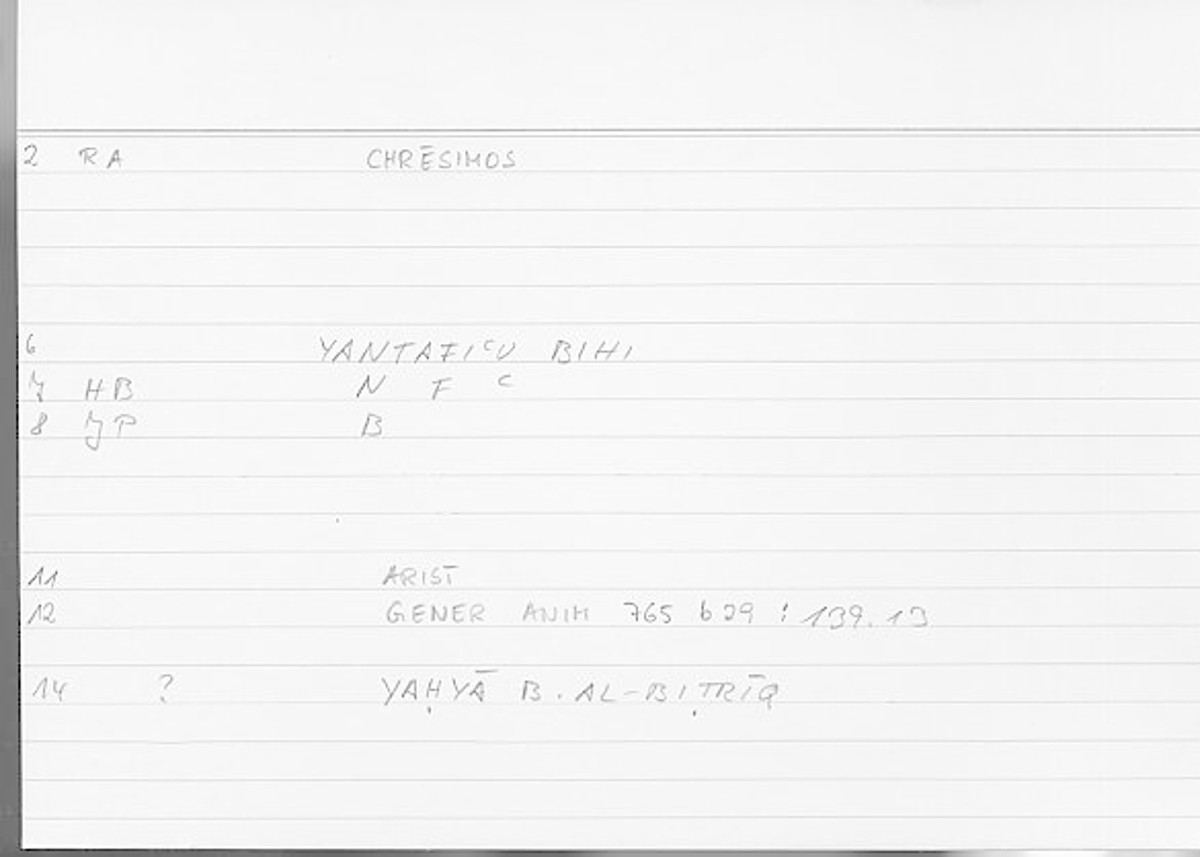 2 RA CHRĒSIMOS
6 YANTAFIᶜU BIHI
7 HB N F ᶜ
8 JP B
11 ARIST
12 GENER ANIM 765 b 29 : 139.13
14 ? YAḤYĀ B. AL-BIṬRĪQ